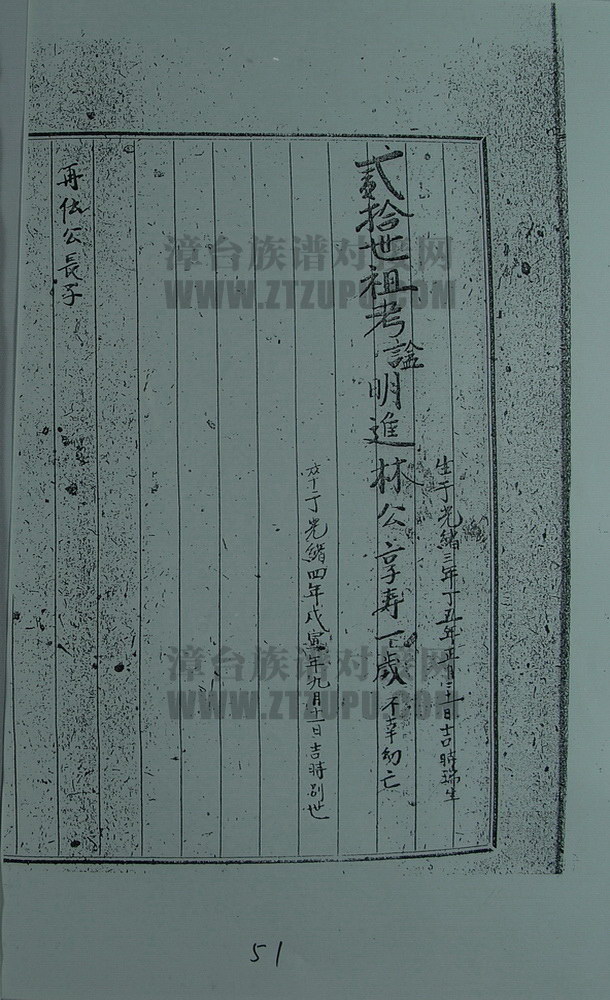 生于光緒三年丁丑年正月二十一日吉時瑞生
貳拾世祖考諡明進林公享壽一歲不幸幼亡
卒于光緒四年戊寅年九月十一日吉時別世
再伍公長子
漳台族谱对接网
WWW.ZTZUPU.COM
漳台族谱对接网
WWW.ZTZUPU.COM
51